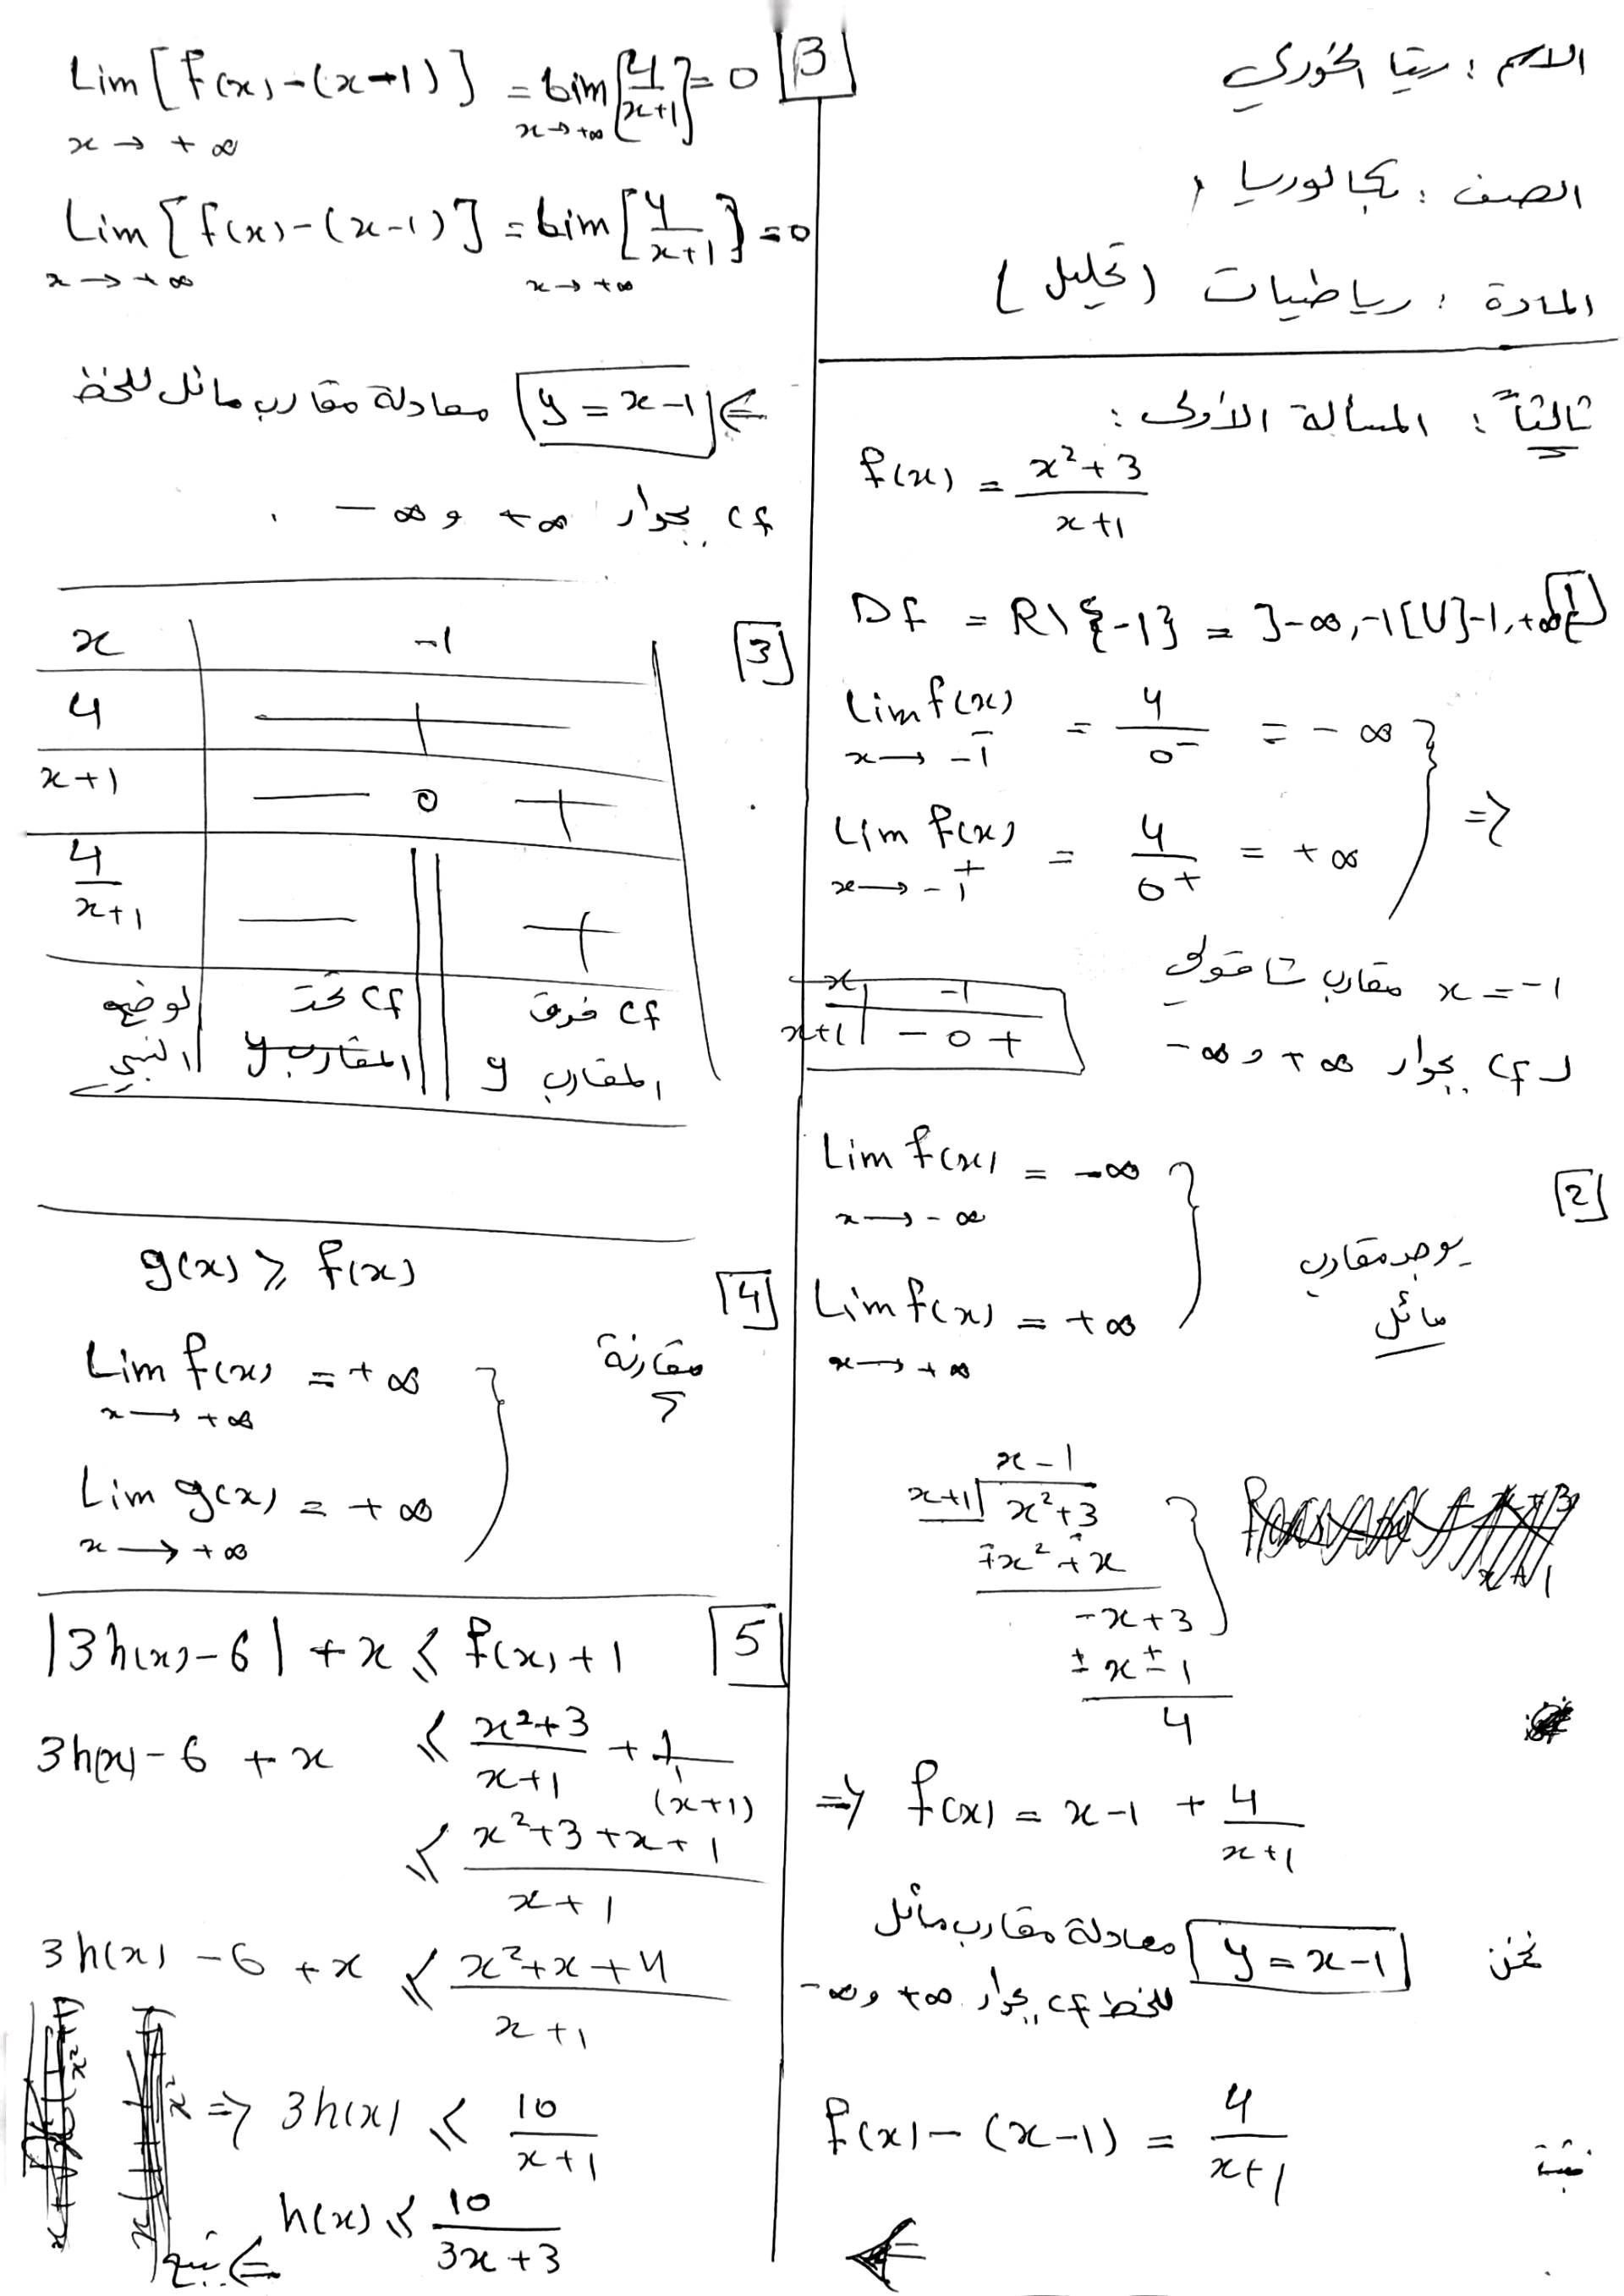 الاسم : ريتا الخوري
الصف : بكالوريا
المادة : رياضيات (تحليل)
ثالثاً : المسألة الأولى :
f(x) = \frac{x²+3}{x+1}
[1] Df = R\{-1} = ]-∞,-1[U]-1,+∞[
Lim f(x) x→-1⁻ = \frac{4}{0⁻} = -∞
Lim f(x) x→-1⁺ = \frac{4}{0⁺} = +∞ } ⇒
x=-1 مقارب شاقولي
لـ cf بجوار +∞ و -∞
x | -1
x+1 | - 0 +
[2] Lim f(x) x→-∞ = -∞
Lim f(x) x→+∞ = +∞
يوجد مقارب
مائل
x-1
x+1 | x²+3
∓x² ∓x
-x+3
±x ±1
4
⇒ f(x) = x-1 + \frac{4}{x+1}
نخن y=x-1 معادلة مقارب مائل
للخط cf بجوار +∞ و -∞
نثبت f(x)-(x-1) = \frac{4}{x+1}
⇐
[3] Lim [f(x)-(x-1)] x→+∞ = Lim [\frac{4}{x+1}] x→+∞ = 0
Lim [f(x)-(x-1)] x→+∞ = Lim [\frac{4}{x+1}] x→+∞ = 0
⇐ y=x-1 معادلة مقارب مائل للخط
cf بجوار +∞ و -∞ .
[3]
x | -1
4 | +
x+1 | - 0 +
\frac{4}{x+1} | - || +
الوضع النسبي | cf تحت المقارب y || cf فوق المقارب y
[4] g(x) ≥ f(x)
مقارنة
Lim f(x) x→+∞ = +∞
Lim g(x) x→+∞ = +∞
[5] |3h(x)-6| + x ≤ f(x)+1
3h(x)-6 + x ≤ \frac{x²+3}{x+1} + \frac{1}{1}
(x+1)
≤ \frac{x²+3+x+1}{x+1}
3h(x) -6 +x ≤ \frac{x²+x+4}{x+1}
⇒ 3h(x) ≤ \frac{10}{x+1}
h(x) ≤ \frac{10}{3x+3}
⇐ يتبع